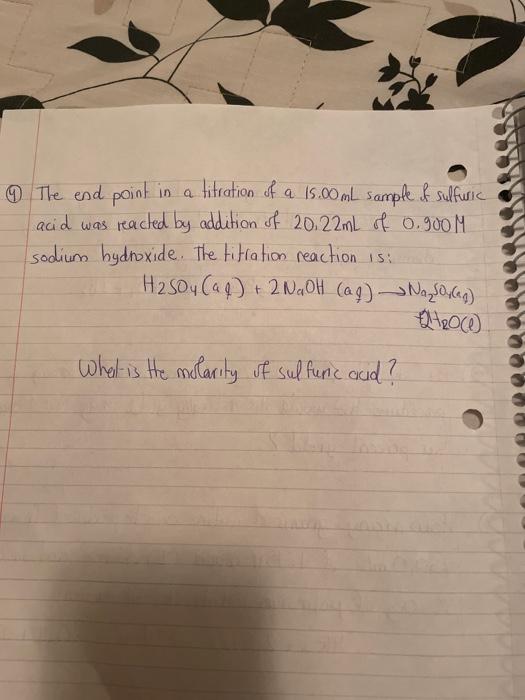 ④ The end point in a titration of a 15.00mL sample of sulfuric
acid was reacted by addition of 20.22mL of 0.900M
sodium hydroxide. The titration reaction is:
H2SO4(aq) + 2NaOH (aq) → Na2SO4(aq)
2H2O(l)
What is the molarity of sulfuric acid?